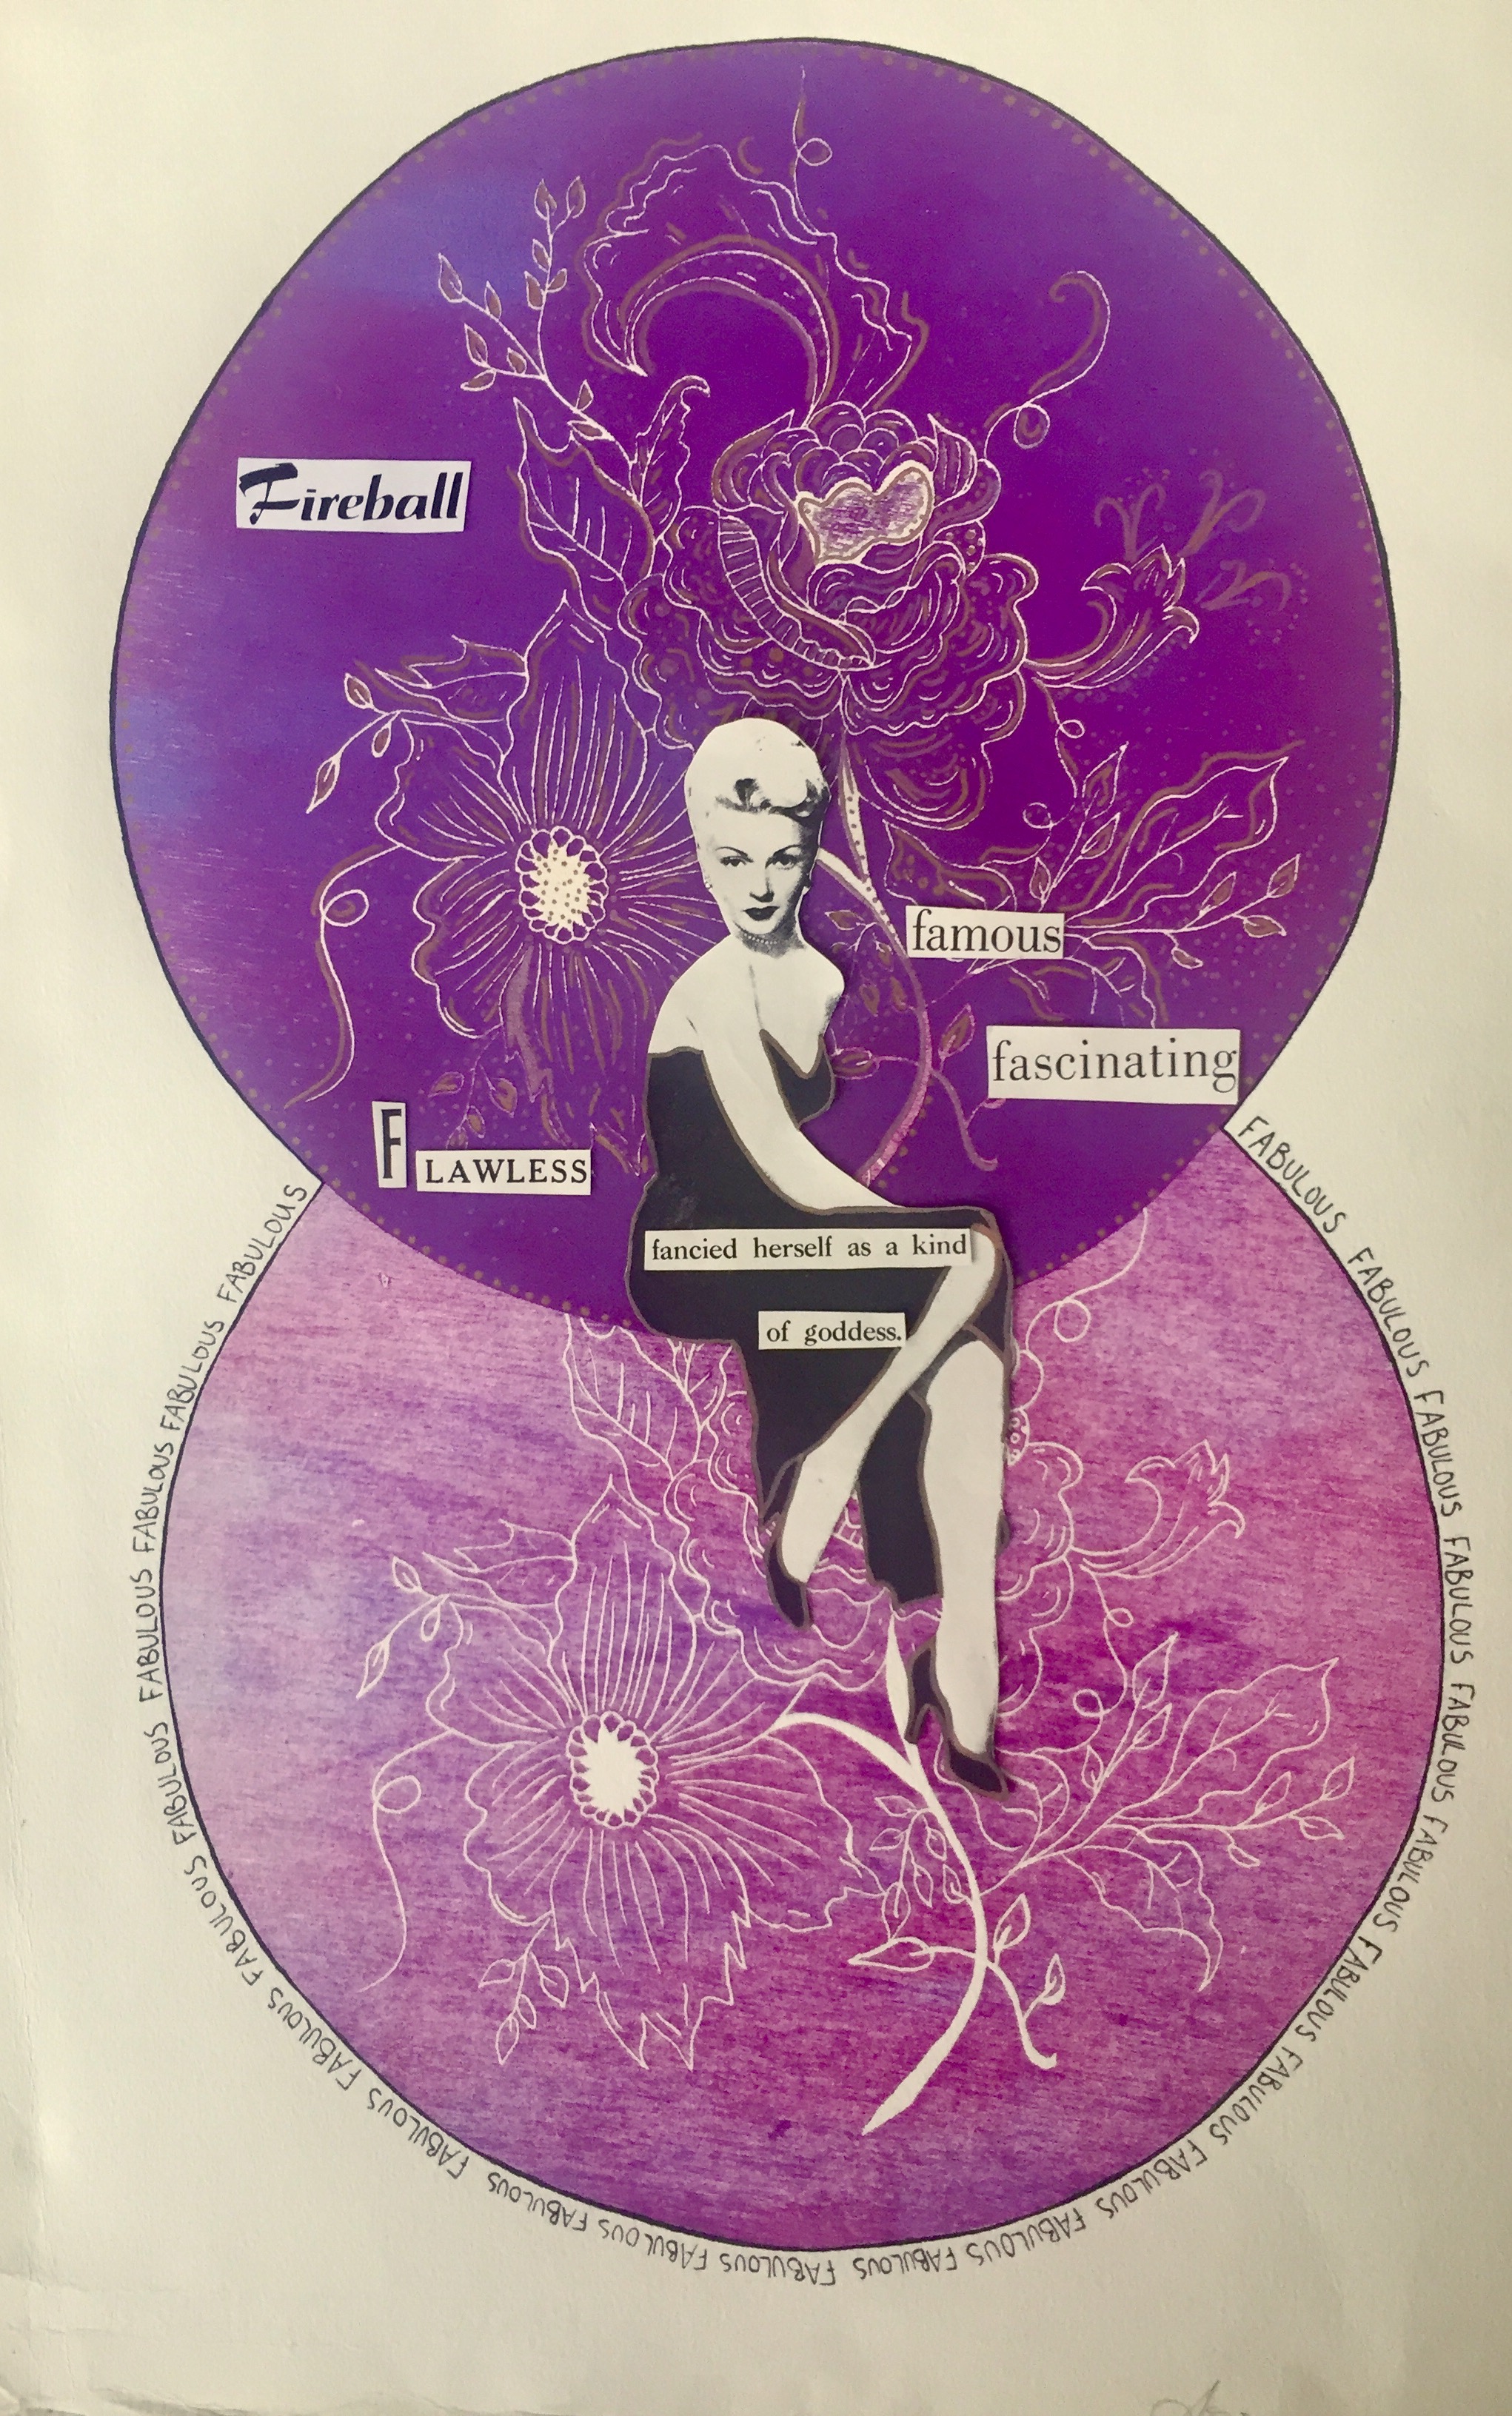 Fireball
famous
fascinating
F LAWLESS
fancied herself as a kind
of goddess.
FABULOUS FABULOUS FABULOUS FABULOUS FABULOUS FABULOUS FABULOUS FABULOUS FABULOUS FABULOUS FABULOUS FABULOUS FABULOUS FABULOUS FABULOUS FABULOUS FABULOUS FABULOUS FABULOUS FABULOUS FABULOUS FABULOUS